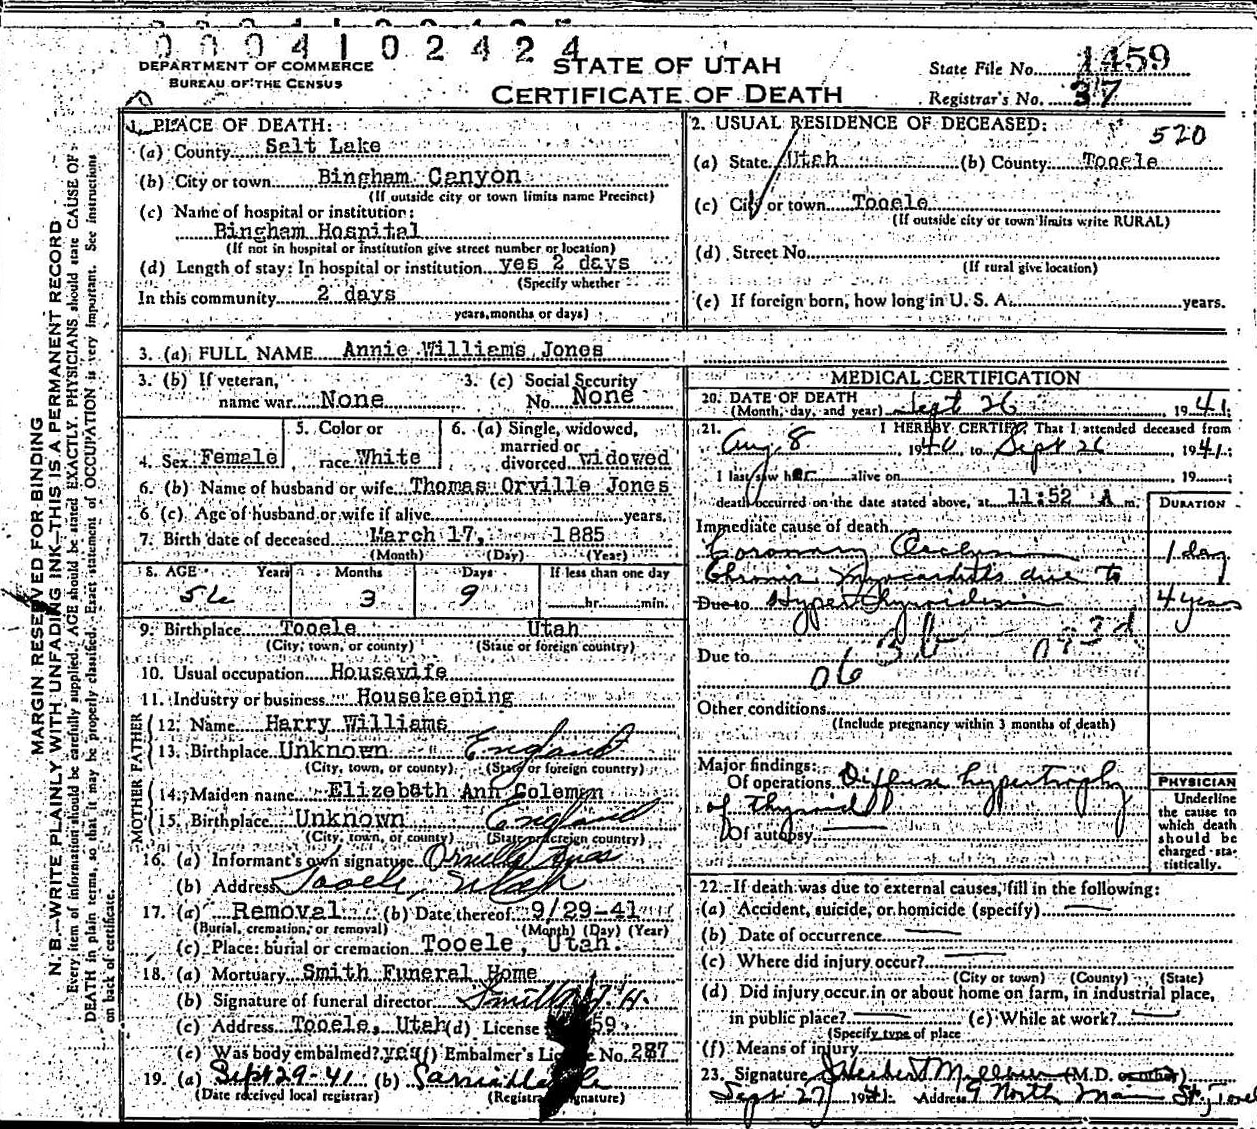 0004102424
DEPARTMENT OF COMMERCE
BUREAU OF THE CENSUS
STATE OF UTAH
CERTIFICATE OF DEATH
State File No. 1459
Registrar's No. 37
1. PLACE OF DEATH:
(a) County Salt Lake
(b) City or town Bingham Canyon
(If outside city or town limits name Precinct)
(c) Name of hospital or institution:
Bingham Hospital
(If not in hospital or institution give street number or location)
(d) Length of stay: In hospital or institution yes 2 days
(Specify whether
In this community 2 days
years, months or days)
2. USUAL RESIDENCE OF DECEASED: 520
(a) State Utah (b) County Tooele
(c) City or town Tooele
(If outside city or town limits write RURAL)
(d) Street No.
(If rural give location)
(e) If foreign born, how long in U. S. A. years.
3. (a) FULL NAME Annie Williams Jones
3. (b) If veteran, name war None
3. (c) Social Security No. None
4. Sex Female
5. Color or race White
6. (a) Single, widowed, married or divorced widowed
6. (b) Name of husband or wife Thomas Orville Jones
6 (c) Age of husband or wife if alive years.
7. Birth date of deceased March 17, 1885
(Month) (Day) (Year)
8. AGE Years Months Days If less than one day
56 3 9 hr. min.
9. Birthplace Tooele Utah
(City, town, or county) (State or foreign country)
10. Usual occupation Housewife
11. Industry or business Housekeeping
FATHER
12. Name Harry Williams
13. Birthplace Unknown England
(City, town, or county) (State or foreign country)
MOTHER
14. Maiden name Elizebath Ann Coleman
15. Birthplace Unknown England
(City, town, or county) (State or foreign country)
16. (a) Informant's own signature Orville Jones
(b) Address Tooele, Utah
17. (a) Removal (b) Date thereof 9/29-41
(Burial, cremation, or removal) (Month) (Day) (Year)
(c) Place: burial or cremation Tooele, Utah.
18. (a) Mortuary Smith Funeral Home
(b) Signature of funeral director
(c) Address Tooele, Utah (d) License 59
(e) Was body embalmed? yes (f) Embalmer's License No. 287
19. (a) Sept 29-41 (b)
(Date received local registrar) (Registrar's signature)
MEDICAL CERTIFICATION
20. DATE OF DEATH
(Month, day, and year) Sept 26, 1941.
21. I HEREBY CERTIFY, That I attended deceased from
Aug. 8 1940, to Sept 26, 1941.
I last saw her alive on 19
death occurred on the date stated above, at 11:52 A m.
DURATION
Immediate cause of death
Coronary Occlusion 1 day
Chronic Myocarditis due to
Due to Hyperthyroidism 4 years
Due to 06 3b 093d
Other conditions
(Include pregnancy within 3 months of death)
Major findings:
Of operations Diffuse hypertrophy
of thyroid
Of autopsy
PHYSICIAN
Underline
the cause to
which death
should be
charged sta-
tistically.
22. If death was due to external causes, fill in the following:
(a) Accident, suicide, or homicide (specify)
(b) Date of occurrence
(c) Where did injury occur?
(City or town) (County) (State)
(d) Did injury occur in or about home on farm, in industrial place,
in public place? (e) While at work?
(Specify type of place
(f) Means of injury
23. Signature (M.D. or other)
Sept 27 1941 Address 9 North Main St.
MARGIN RESERVED FOR BINDING
N. B.—WRITE PLAINLY WITH UNFADING INK—THIS IS A PERMANENT RECORD
Every item of information should be carefully supplied. AGE should be stated EXACTLY. PHYSICIANS should state CAUSE OF
DEATH in plain terms, so that it may be properly classified. Exact statement of OCCUPATION is very important. See instructions
on back of certificate.